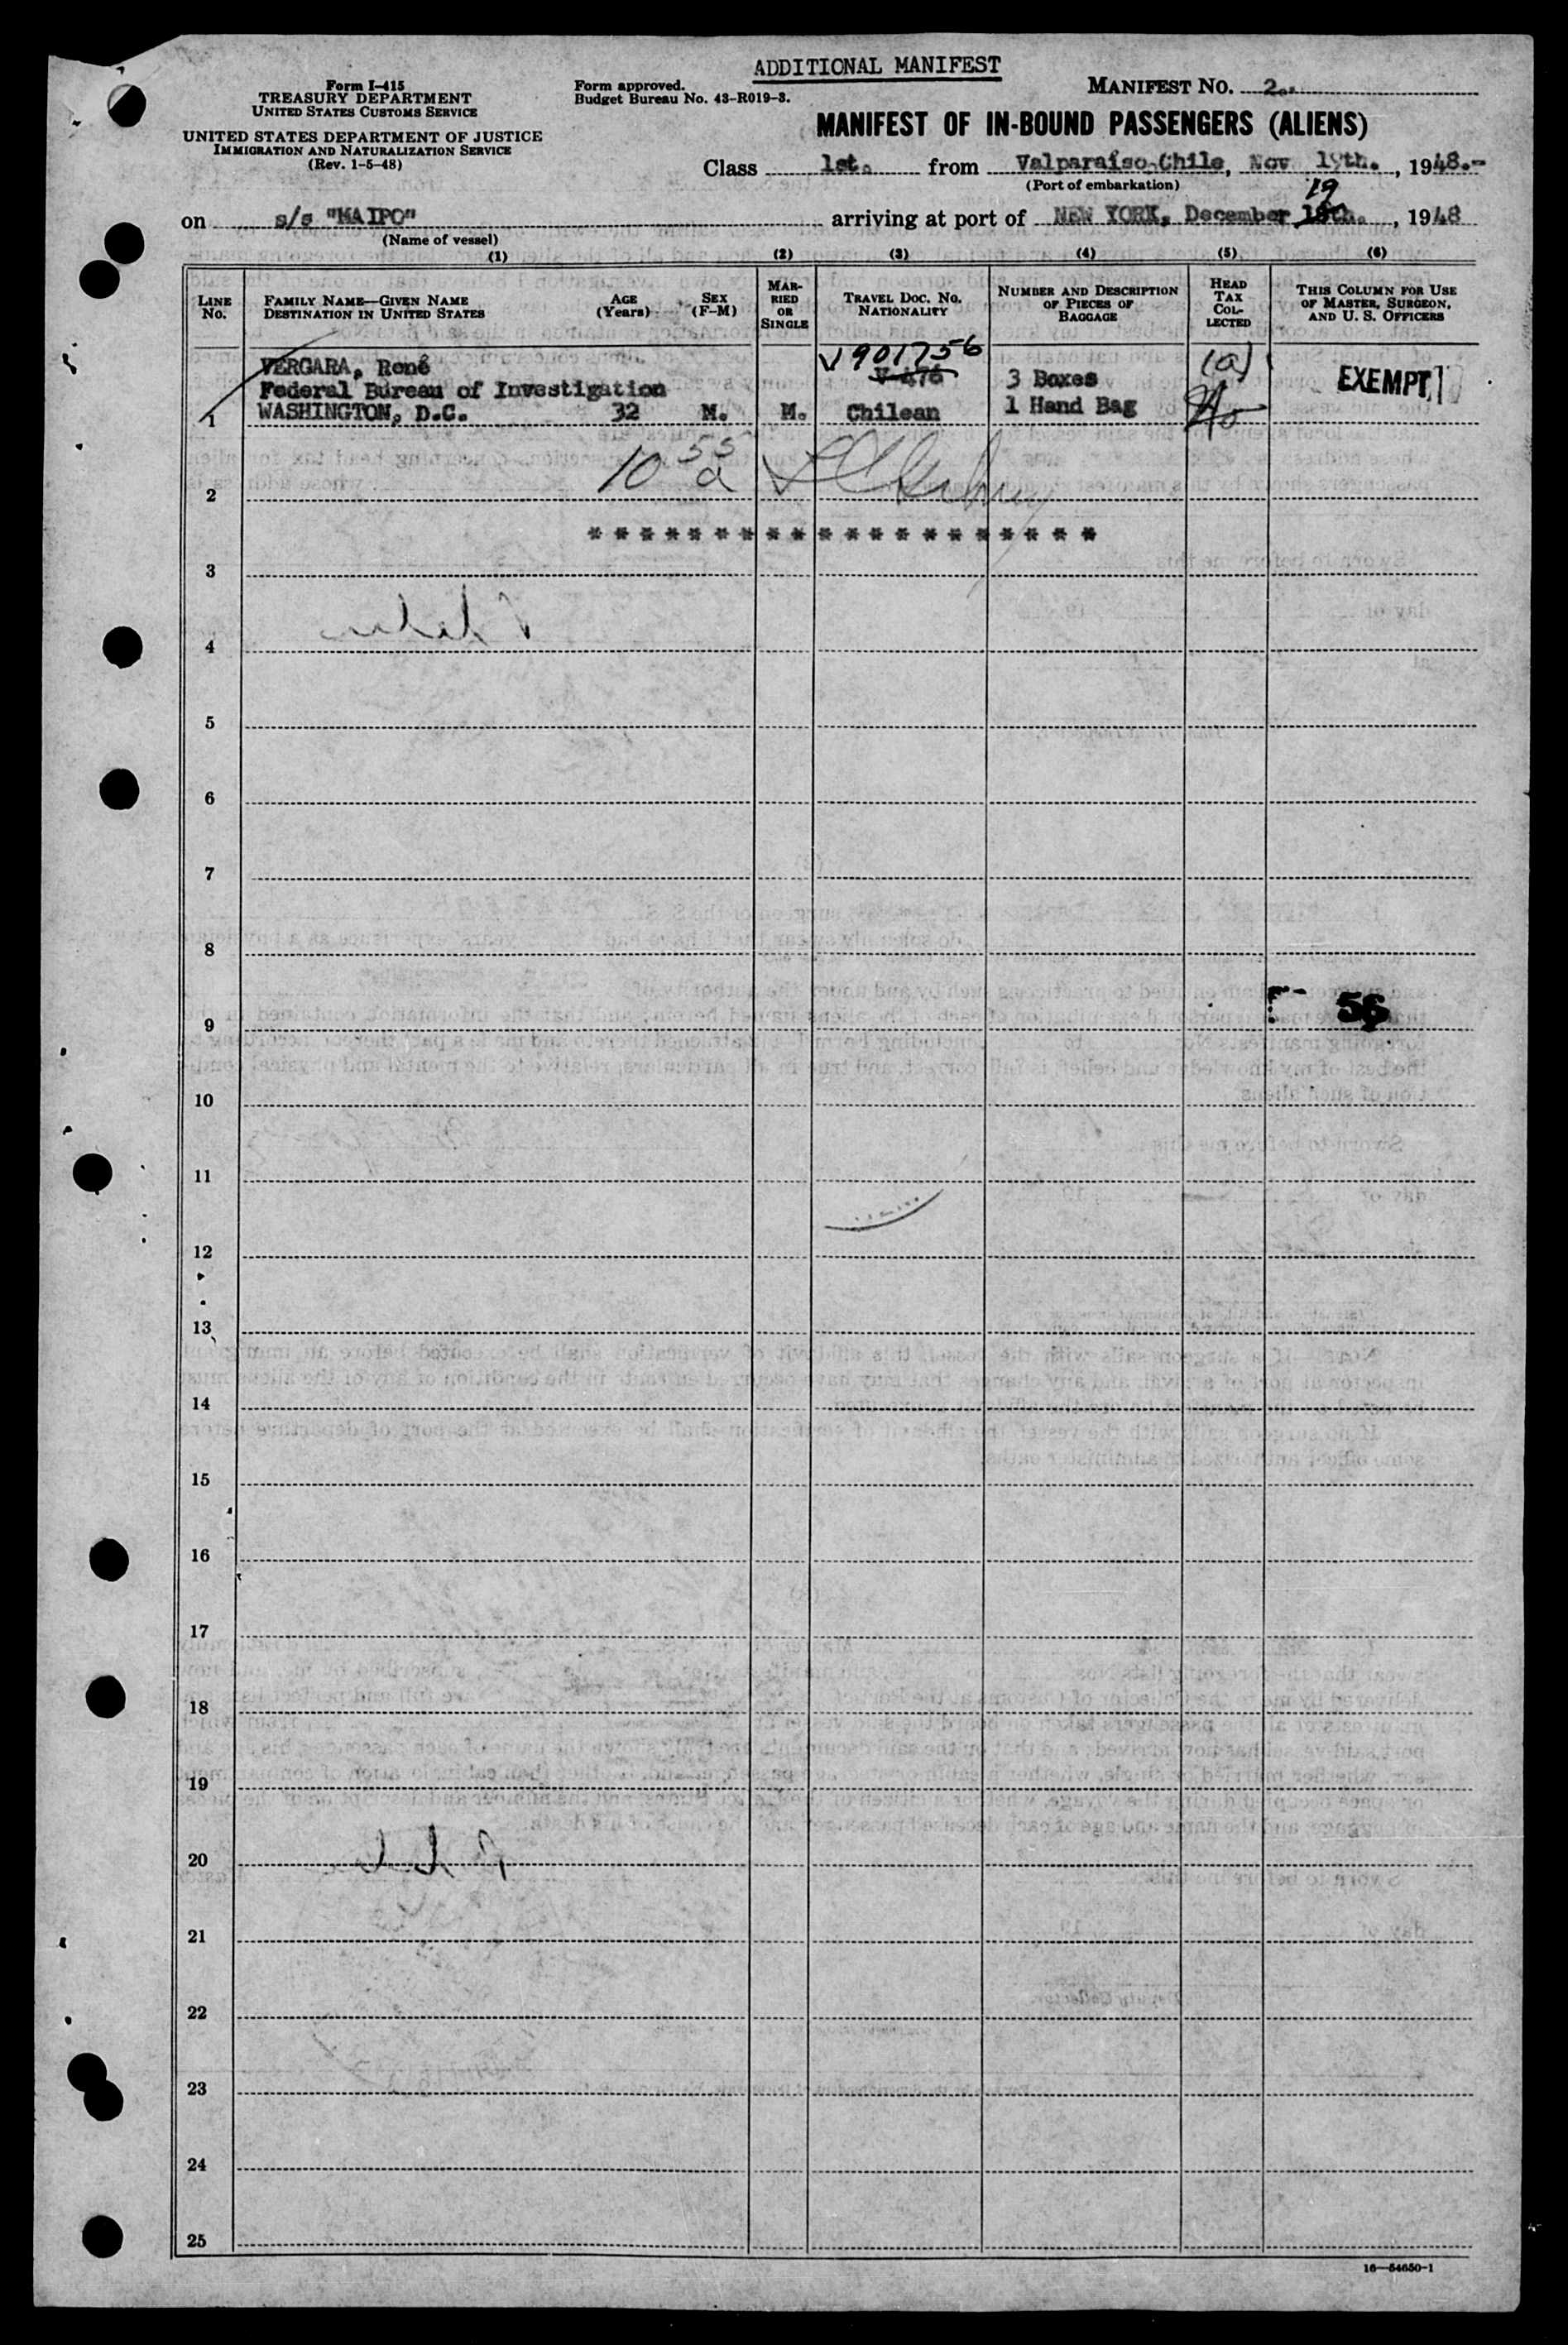 ADDITIONAL MANIFEST
Form I-415
TREASURY DEPARTMENT
UNITED STATES CUSTOMS SERVICE
UNITED STATES DEPARTMENT OF JUSTICE
IMMIGRATION AND NATURALIZATION SERVICE
(Rev. 1-5-48)
Form approved.
Budget Bureau No. 43-R019-3.
MANIFEST NO. 2.
MANIFEST OF IN-BOUND PASSENGERS (ALIENS)
Class 1st. from Valparaíso-Chile, Nov 19th., 1948.-
(Port of embarkation)
19
on s/s "MAIPO" arriving at port of NEW YORK, December 18th., 1948
(Name of vessel)
(1) (2) (3) (4) (5) (6)
LINE No. FAMILY NAME—GIVEN NAME DESTINATION IN UNITED STATES AGE (Years) SEX (F-M) MARRIED OR SINGLE TRAVEL DOC. NO. NATIONALITY NUMBER AND DESCRIPTION OF PIECES OF BAGGAGE HEAD TAX COLLECTED THIS COLUMN FOR USE OF MASTER, SURGEON, AND U. S. OFFICERS
V901756
VERGARA, René (a)
Federal Bureau of Investigation 3 Boxes EXEMPT
1 WASHINGTON, D.C. 32 M. M. Chilean 1 Hand Bag
10 55 a
2
* * * * * * * * * * * * * * * * * * * * *
3
4
5
6
7
8
56
9
10
11
12
13
14
15
16
17
18
19
20
21
22
23
24
25
16—54650-1